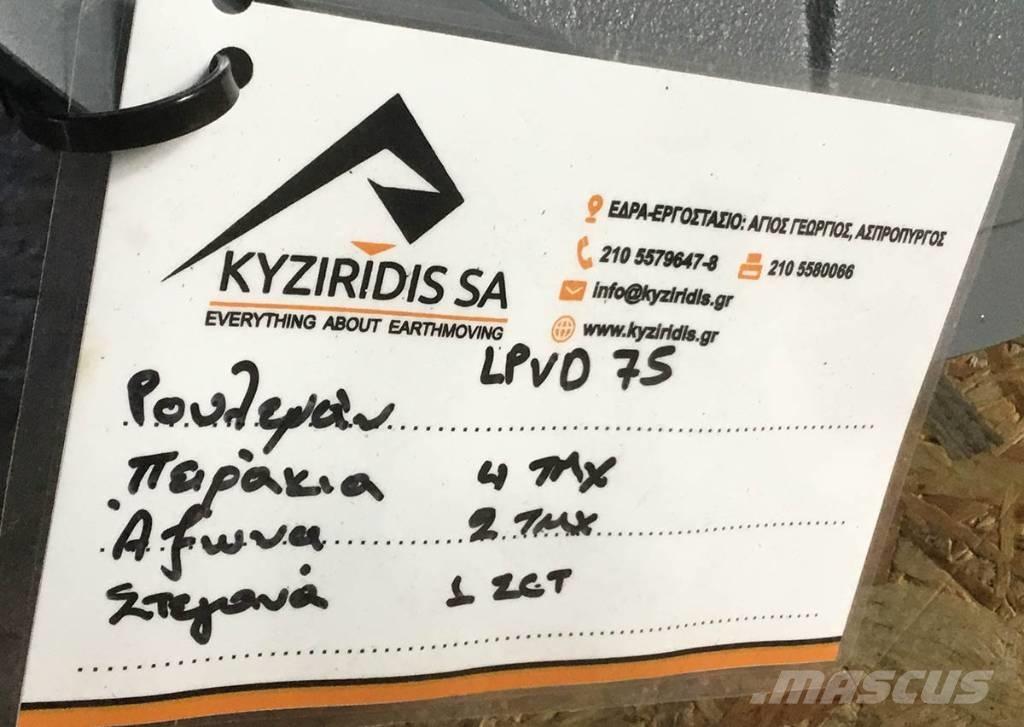 KYZIRIDIS SA
EVERYTHING ABOUT EARTHMOVING
ΕΔΡΑ-ΕΡΓΟΣΤΑΣΙΟ: ΑΓΙΟΣ ΓΕΩΡΓΙΟΣ, ΑΣΠΡΟΠΥΡΓΟΣ
210 5579647-8 210 5580066
info@kyziridis.gr
www.kyziridis.gr
LPVD 75
Ρουλεμάν
Πειράκια 4 ΤΜΧ
Άξωνα 2 ΤΜΧ
Στεγανά 1 ΣΕΤ
MASCUS